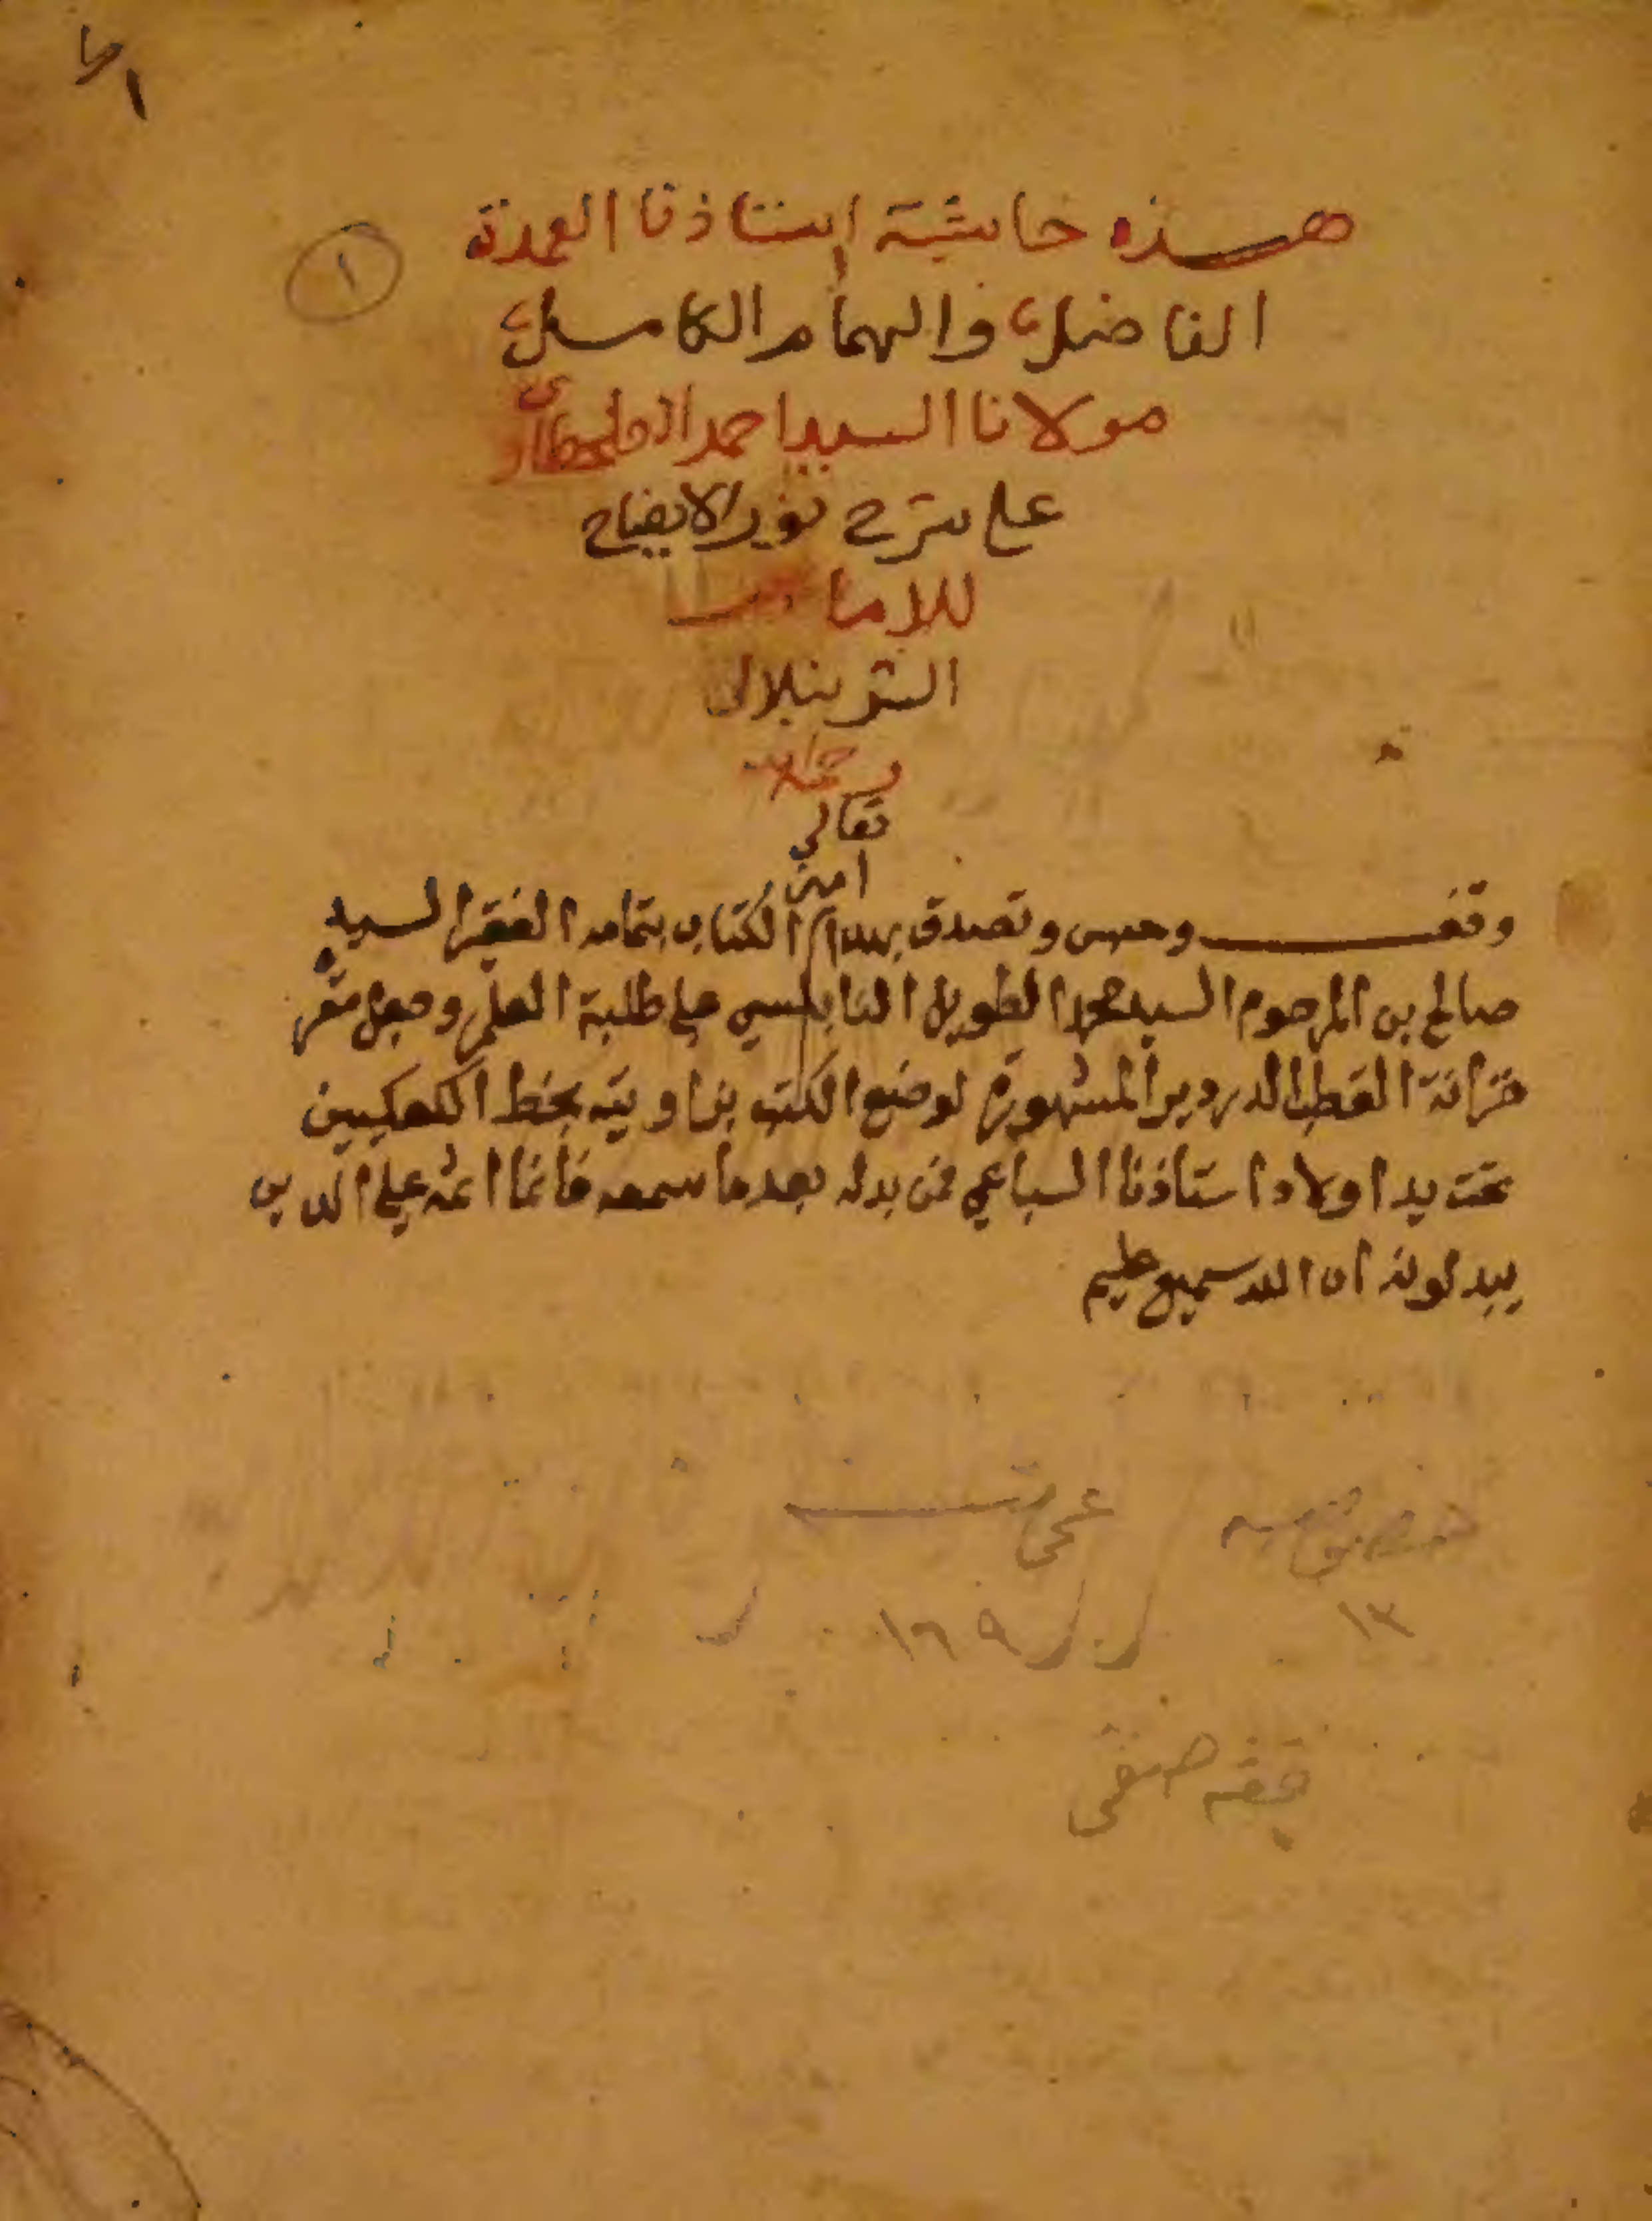 ١
هذه حاشية استاذنا العمدة
الفاضل والهمام الكامل
مولانا السيد احمد الطحطاوى
على شرح نور الايضاح
للامام
الشرنبلالى
رحمه الله
تعالى
امين
وقف وحبس وتصدق بهذا الكتاب بتمامه الفقير السيد
صالح بن المرحوم السيد محمد الطويل النابلسي على طلبة العلم وجعل مقره
خزانة القطب الدردير المشهورة لوضع الكتب بزاويته بخط الكعكيين
تحت يد اولاد استاذنا السباعي فمن بدله بعدما سمعه فانما اثمه على الذين
يبدلونه ان الله سميع عليم
خصوصيه
عمومى
١٣
١٦٩
فقه حنفى